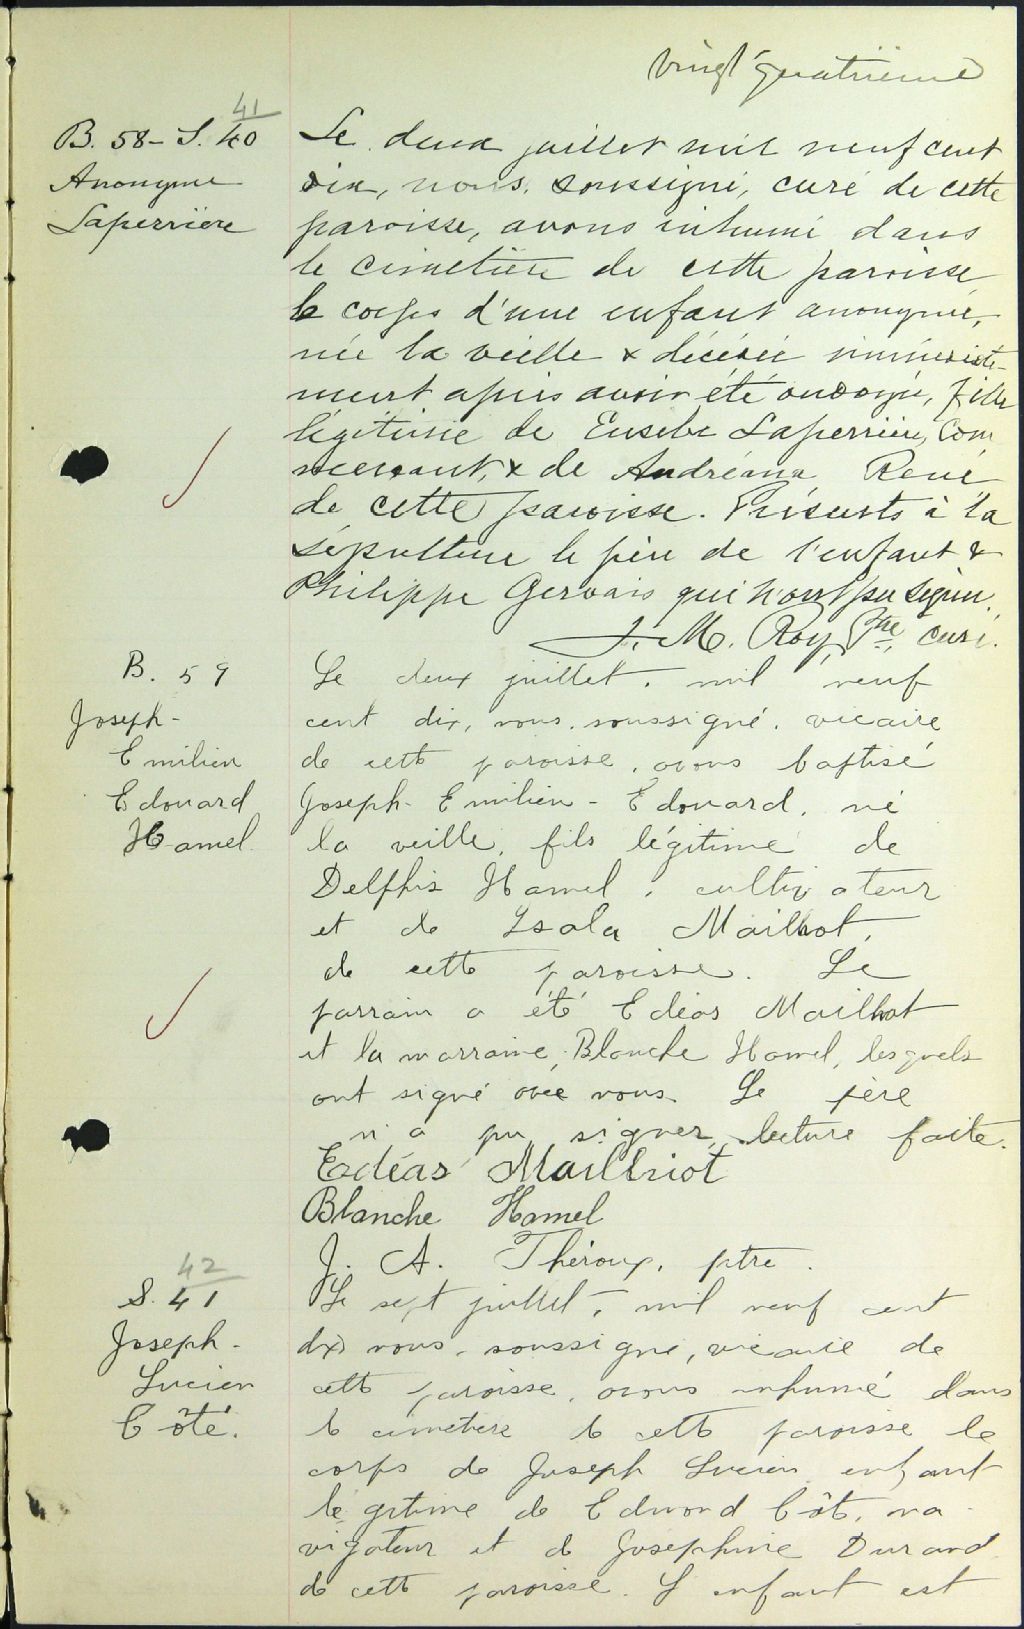 vingt quatrième
41
B. 58 - S. 40
Anonyme
Laperrière
Le deux juillet mil neuf cent
dix, nous, soussigné, curé de cette
paroisse, avons inhumé dans
le cimetière de cette paroisse
le corps d'une enfant anonyme,
née la veille & décédée immédiate-
ment après avoir été ondoyé, fille
légitime de Eusèbe Laperrière, Com
mercant, & de Andréana René
de cette paroisse. Présents à la
sépulture le père de l'enfant &
Philippe Gervais qui n'ont pu signer.
J. M. Roy Ptre, curé.
B. 59
Joseph-
Emilien
Edouard
Hamel
Le deux juillet, mil neuf
cent dix, nous, soussigné, vicaire
de cette paroisse, avons baptisé
Joseph-Emilien-Edouard, né
la veille, fils légitime de
Delphis Hamel, cultivateur
et de Isola Mailhot,
de cette paroisse. Le
parrain a été Edéas Mailhot
et la marraine, Blanche Hamel, lesquels
ont signé avec nous. Le père
n'a pu signer, lecture faite.
Edéas Mailhiot
Blanche Hamel
J. A. Théroux, ptre.
42
S. 41
Joseph-
Lucien
Côté.
Le sept juillet, mil neuf cent
dix, nous, soussigné, vicaire de
cette paroisse, avons inhumé dans
le cimetière de cette paroisse le
corps de Joseph Lucien enfant
légitime de Edmond Côté, na
vigateur et de Josephine Durand
de cette paroisse. L'enfant est